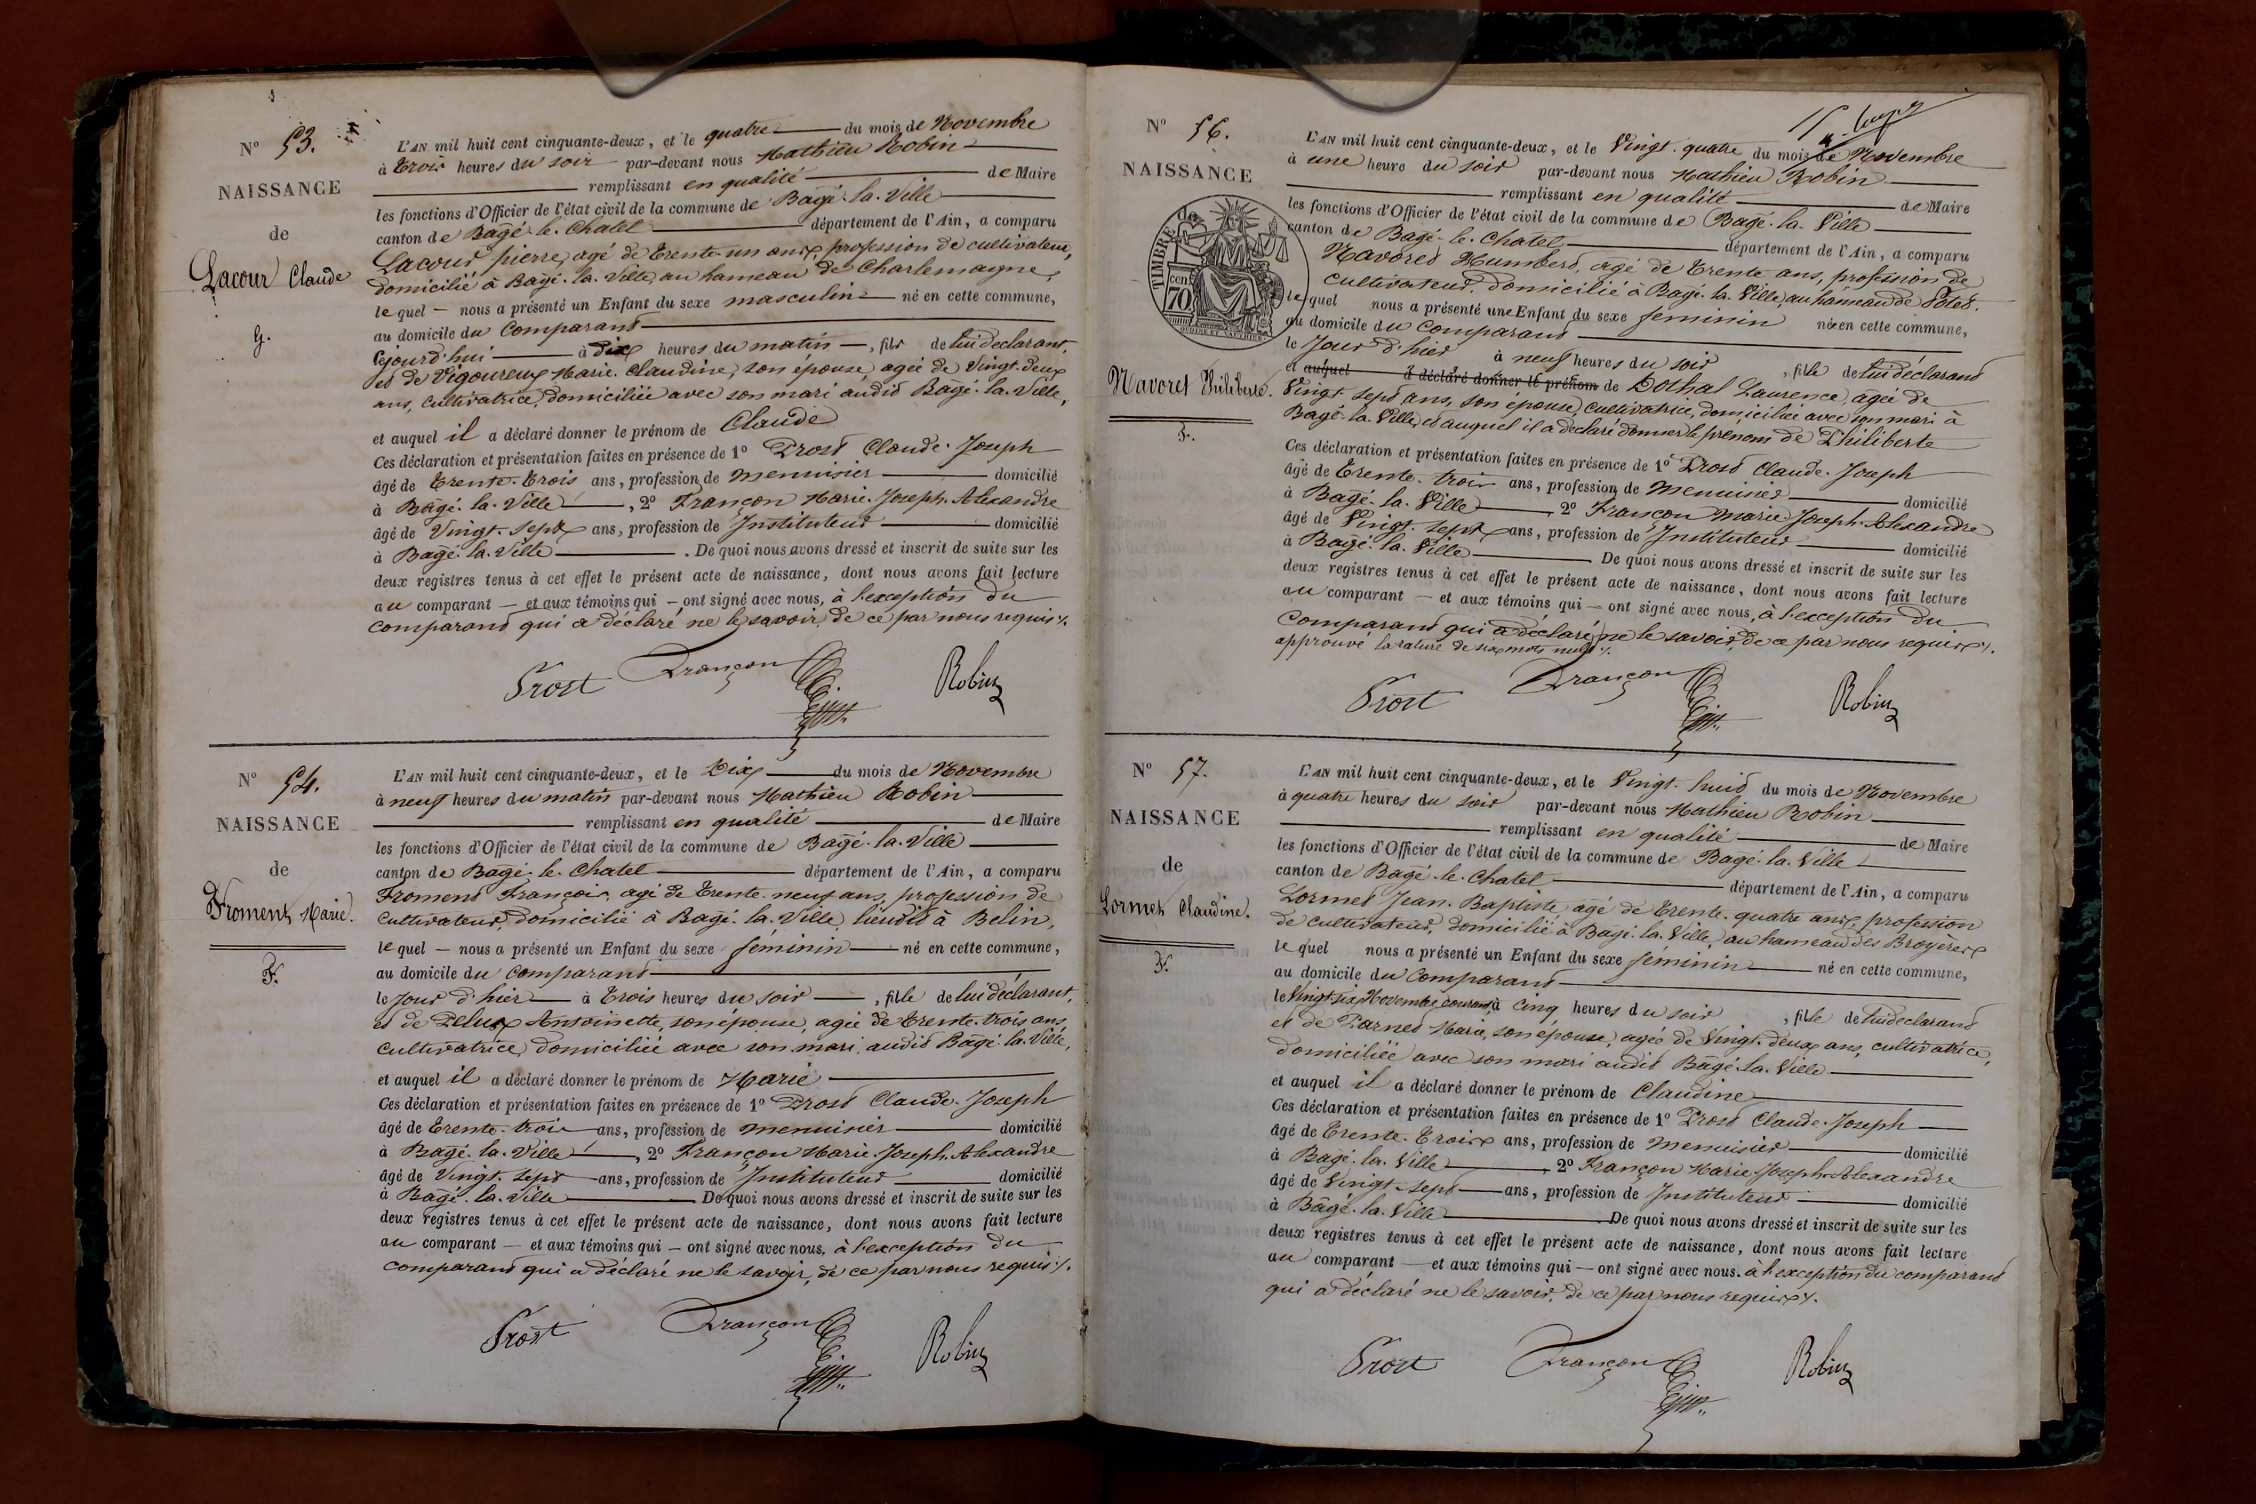 N° 53.
NAISSANCE
de
Lacour Claude
G.
L'AN mil huit cent cinquante-deux, et le quatre du mois de Novembre
à trois heures du soir par-devant nous Mathieu Robin
remplissant en qualité de Maire
les fonctions d'Officier de l'état civil de la commune de Bagé-la-Ville
canton de Bagé-le-Chatel département de l'Ain, a comparu
Lacour pierre, agé de trente-un ans, profession de cultivateur,
domicilié à Bagé-la-Ville, au hameau de Charlemagne,
le quel — nous a présenté un Enfant du sexe masculin né en cette commune,
au domicile du comparant
Cejourd'hui à dix heures du matin, fils de lui déclarant,
et de Vigoureux Marie Claudine, son épouse, agée de Vingt-deux
ans, cultivatrice, domiciliée avec son mari audit Bagé-la-Ville,
et auquel il a déclaré donner le prénom de Claude
Ces déclaration et présentation faites en présence de 1° Prost Claude-Joseph
âgé de trente-trois ans, profession de menuisier domicilié
à Bagé-la-Ville, 2° Françon Marie-Joseph-Alexandre
âgé de Vingt-sept ans, profession de Instituteur domicilié
à Bagé-la-Ville. De quoi nous avons dressé et inscrit de suite sur les
deux registres tenus à cet effet le présent acte de naissance, dont nous avons fait lecture
au comparant — et aux témoins qui — ont signé avec nous, à l'exception du
comparant qui a déclaré ne le savoir, de ce par nous requis ./.
Prost Françon Robin
N° 54.
NAISSANCE
de
Froment Marie.
F.
L'AN mil huit cent cinquante-deux, et le Dix du mois de Novembre
à neuf heures du matin par-devant nous Mathieu Robin
remplissant en qualité de Maire
les fonctions d'Officier de l'état civil de la commune de Bagé-la-Ville
canton de Bagé-le-Chatel département de l'Ain, a comparu
Froment François, agé de trente-neuf ans, profession de
cultivateur, domicilié à Bagé-la-Ville, lieudit à Belin,
le quel — nous a présenté un Enfant du sexe féminin né en cette commune,
au domicile du comparant
le jour d'hier à trois heures du soir, fille de lui déclarant,
et de Antoinette, son épouse, agée de trente-trois ans,
cultivatrice, domiciliée avec son mari audit Bagé-la-Ville,
et auquel il a déclaré donner le prénom de Marie
Ces déclaration et présentation faites en présence de 1° Prost Claude-Joseph
âgé de trente-trois ans, profession de menuisier domicilié
à Bagé-la-Ville, 2° Françon Marie-Joseph-Alexandre
âgé de Vingt-sept ans, profession de Instituteur domicilié
à Bagé-la-Ville De quoi nous avons dressé et inscrit de suite sur les
deux registres tenus à cet effet le présent acte de naissance, dont nous avons fait lecture
au comparant — et aux témoins qui — ont signé avec nous, à l'exception du
comparant qui a déclaré ne le savoir, de ce par nous requis ./.
Prost Françon Robin
N° 56.
NAISSANCE
de
TIMBRE
70 cent
Navoret Philiberte.
F.
L'AN mil huit cent cinquante-deux, et le Vingt-quatre du mois de Novembre
à une heure du soir par-devant nous Mathieu Robin
remplissant en qualité de Maire
les fonctions d'Officier de l'état civil de la commune de Bagé-la-Ville
canton de Bagé-le-Chatel département de l'Ain, a comparu
Navoret Humbert, agé de trente ans, profession de
cultivateur, domicilié à Bagé-la-Ville, au hameau de
le quel nous a présenté une Enfant du sexe féminin née en cette commune,
au domicile du comparant
le Jour d'hier à neuf heures du soir, fille de lui déclarant
et auquel a déclaré donner le prénom de Dothal Laurence, agée de
Vingt-sept ans, son épouse, cultivatrice, domiciliée avec son mari à
Bagé-la-Ville, et auquel il a déclaré donner le prénom de Philiberte
Ces déclaration et présentation faites en présence de 1° Prost Claude-Joseph
âgé de trente-trois ans, profession de menuisier domicilié
à Bagé-la-Ville, 2° Françon Marie Joseph-Alexandre
âgé de Vingt-sept ans, profession de Instituteur domicilié
à Bagé-la-Ville De quoi nous avons dressé et inscrit de suite sur les
deux registres tenus à cet effet le présent acte de naissance, dont nous avons fait lecture
au comparant — et aux témoins qui — ont signé avec nous, à l'exception du
comparant qui a déclaré ne le savoir, de ce par nous requis ./.
approuvé la rature de six mots nuls ./.
Prost Françon Robin
N° 57.
NAISSANCE
de
Lormet Claudine.
F.
L'AN mil huit cent cinquante-deux, et le Vingt-huit du mois de Novembre
à quatre heures du soir par-devant nous Mathieu Robin
remplissant en qualité de Maire
les fonctions d'Officier de l'état civil de la commune de Bagé-la-Ville
canton de Bagé-le-Chatel département de l'Ain, a comparu
Lormet Jean-Baptiste, agé de trente-quatre ans, profession
de cultivateur, domicilié à Bagé-la-Ville, au hameau des Broyères
le quel nous a présenté un Enfant du sexe féminin né en cette commune,
au domicile du comparant
le Vingt-six Novembre courant, à cinq heures du soir, fille de lui déclarant
et de Parnet Marie, son épouse, agée de Vingt-deux ans, cultivatrice,
domiciliée avec son mari audit Bagé-la-Ville
et auquel il a déclaré donner le prénom de Claudine
Ces déclaration et présentation faites en présence de 1° Prost Claude-Joseph
âgé de trente-trois ans, profession de menuisier domicilié
à Bagé-la-Ville, 2° Françon Marie-Joseph-Alexandre
âgé de Vingt-sept ans, profession de Instituteur domicilié
à Bagé-la-Ville. De quoi nous avons dressé et inscrit de suite sur les
deux registres tenus à cet effet le présent acte de naissance, dont nous avons fait lecture
au comparant — et aux témoins qui — ont signé avec nous, à l'exception du comparant
qui a déclaré ne le savoir, de ce par nous requis ./.
Prost Françon Robin